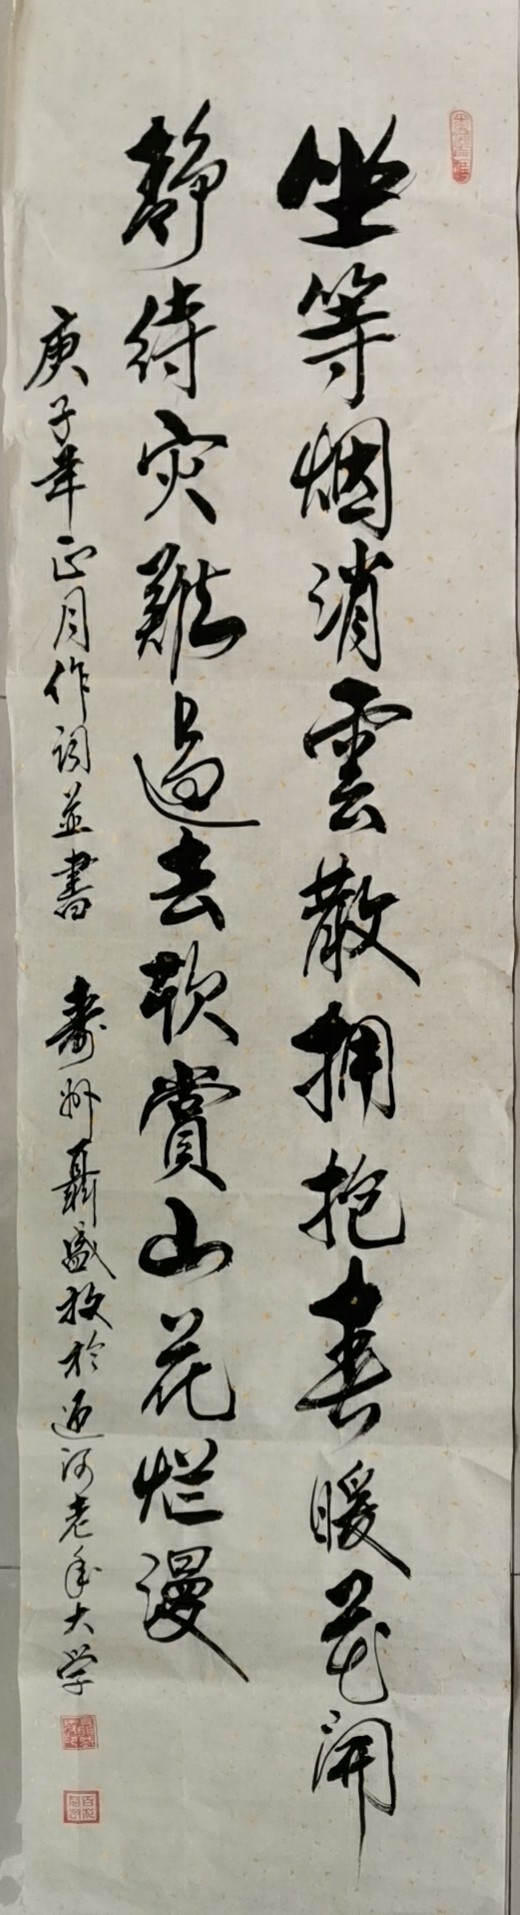 坐等烟消雲散拥抱春暖花开
静待灾難過去欣賞山花烂漫
庚子年正月作词並書 壽州聂盛放於迎河老年大学